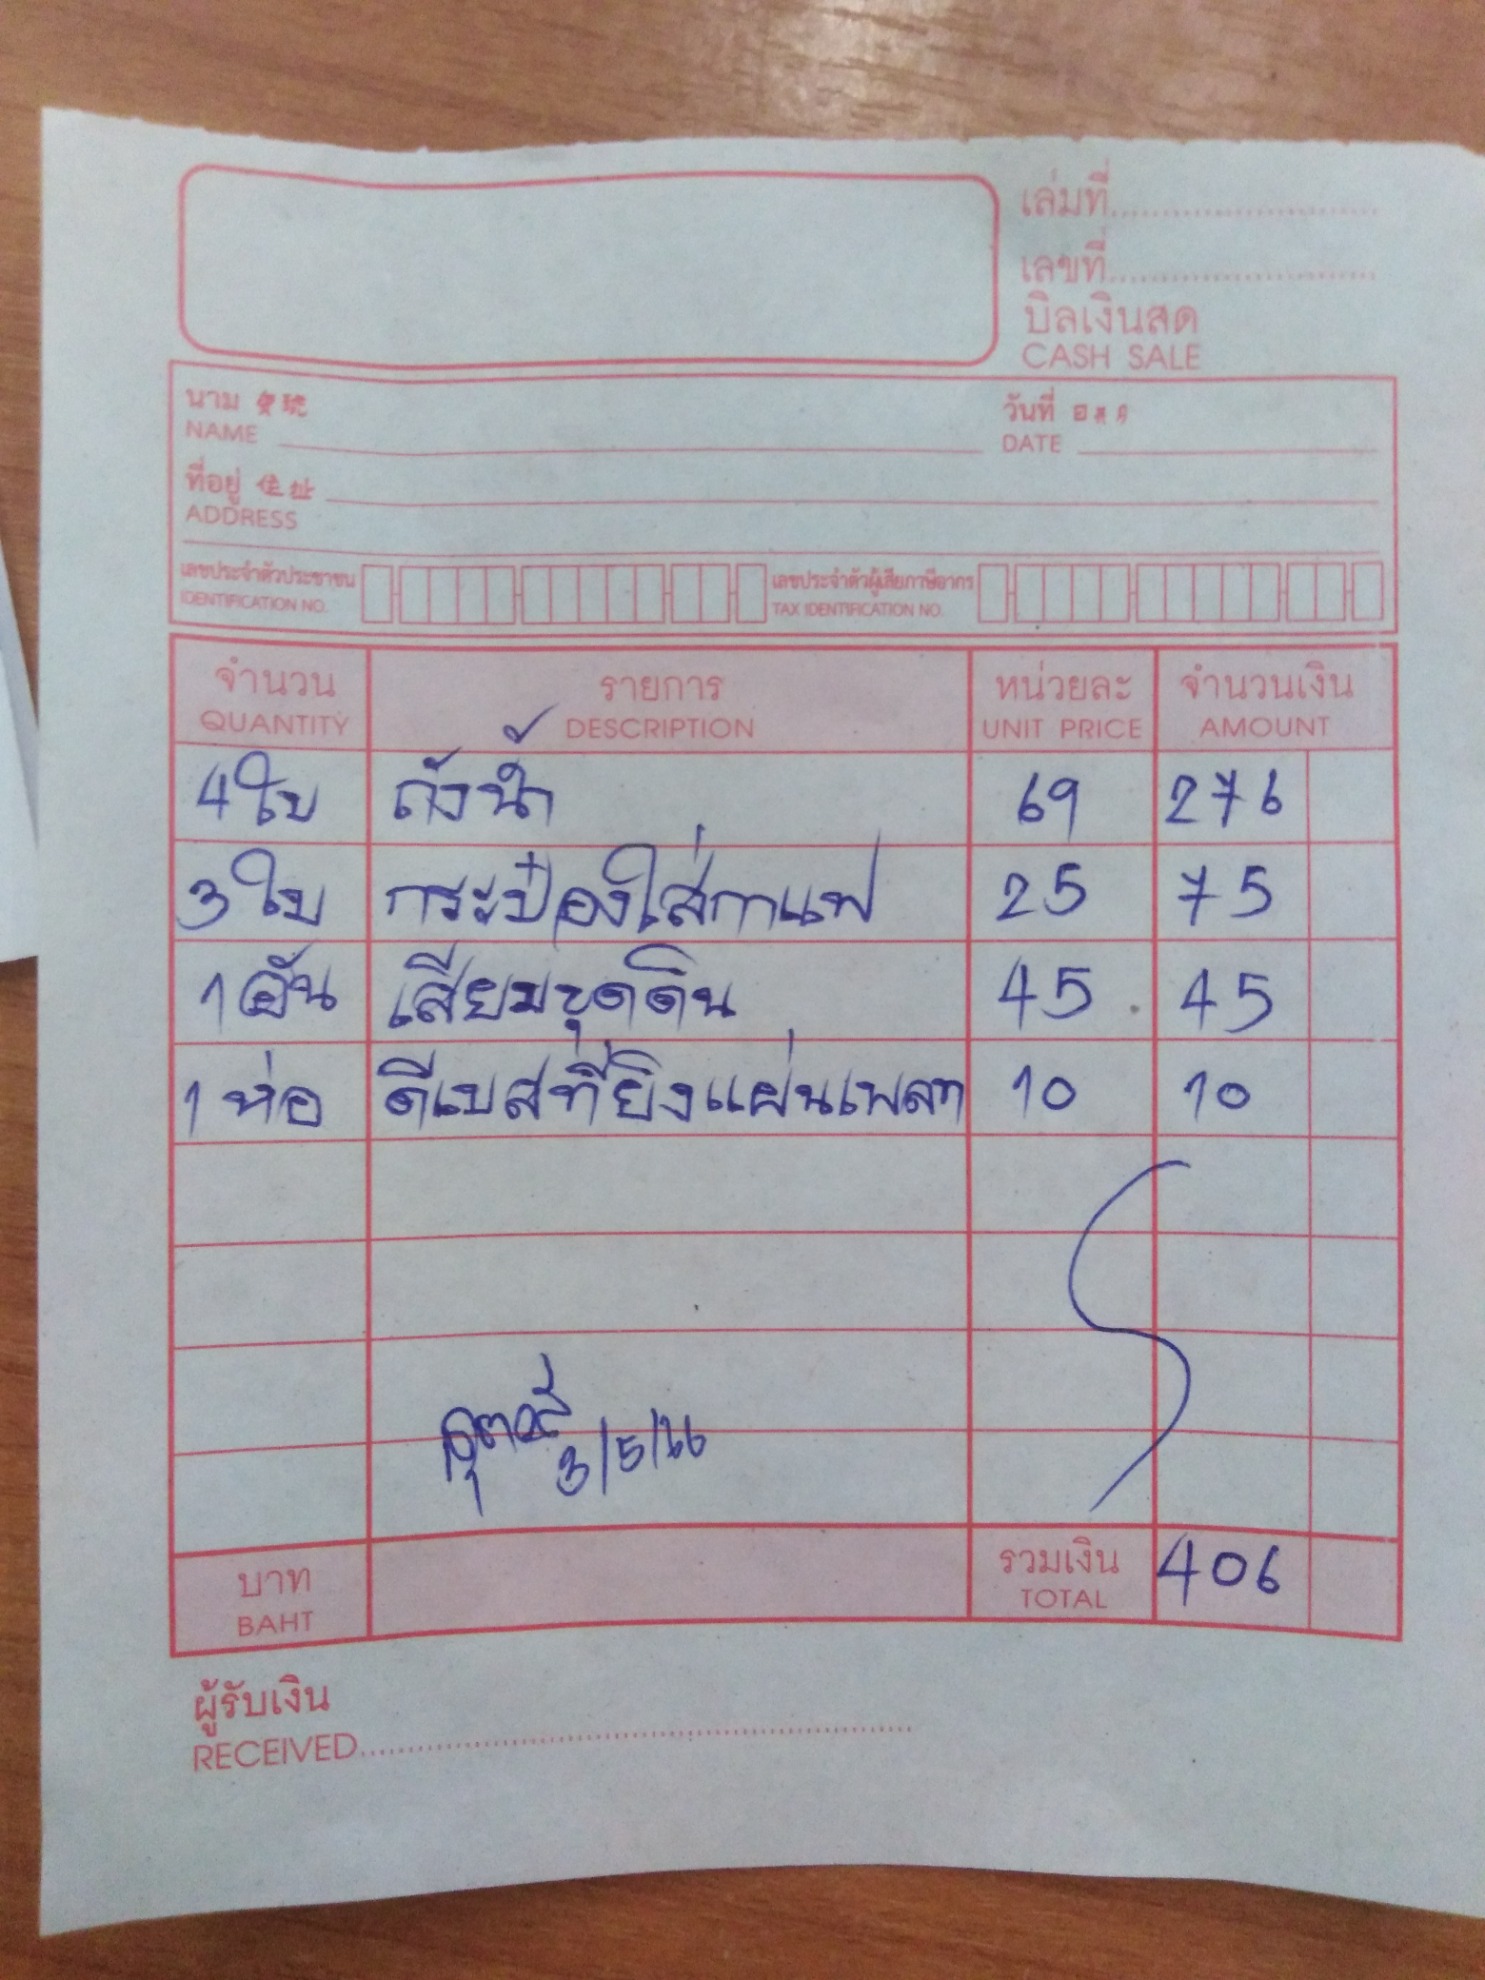 เล่มที่
เลขที่
บิลเงินสด
CASH SALE
นาม 寶號 วันที่
NAME DATE
ที่อยู่ 住址
ADDRESS
เลขประจำตัวประชาชน เลขประจำตัวผู้เสียภาษีอากร
IDENTIFICATION NO. TAX IDENTIFICATION NO.
จำนวน รายการ หน่วยละ จำนวนเงิน
QUANTITY DESCRIPTION UNIT PRICE AMOUNT
4 ใบ ถังน้ำ 69 276
3 ใบ กระป๋องใส่กาแฟ 25 75
1 อัน เสียมขุดดิน 45 45
1 ห่อ ที่ยิงแผ่นเพลท 10 10
3/5/66
บาท รวมเงิน 406
BAHT TOTAL
ผู้รับเงิน
RECEIVED